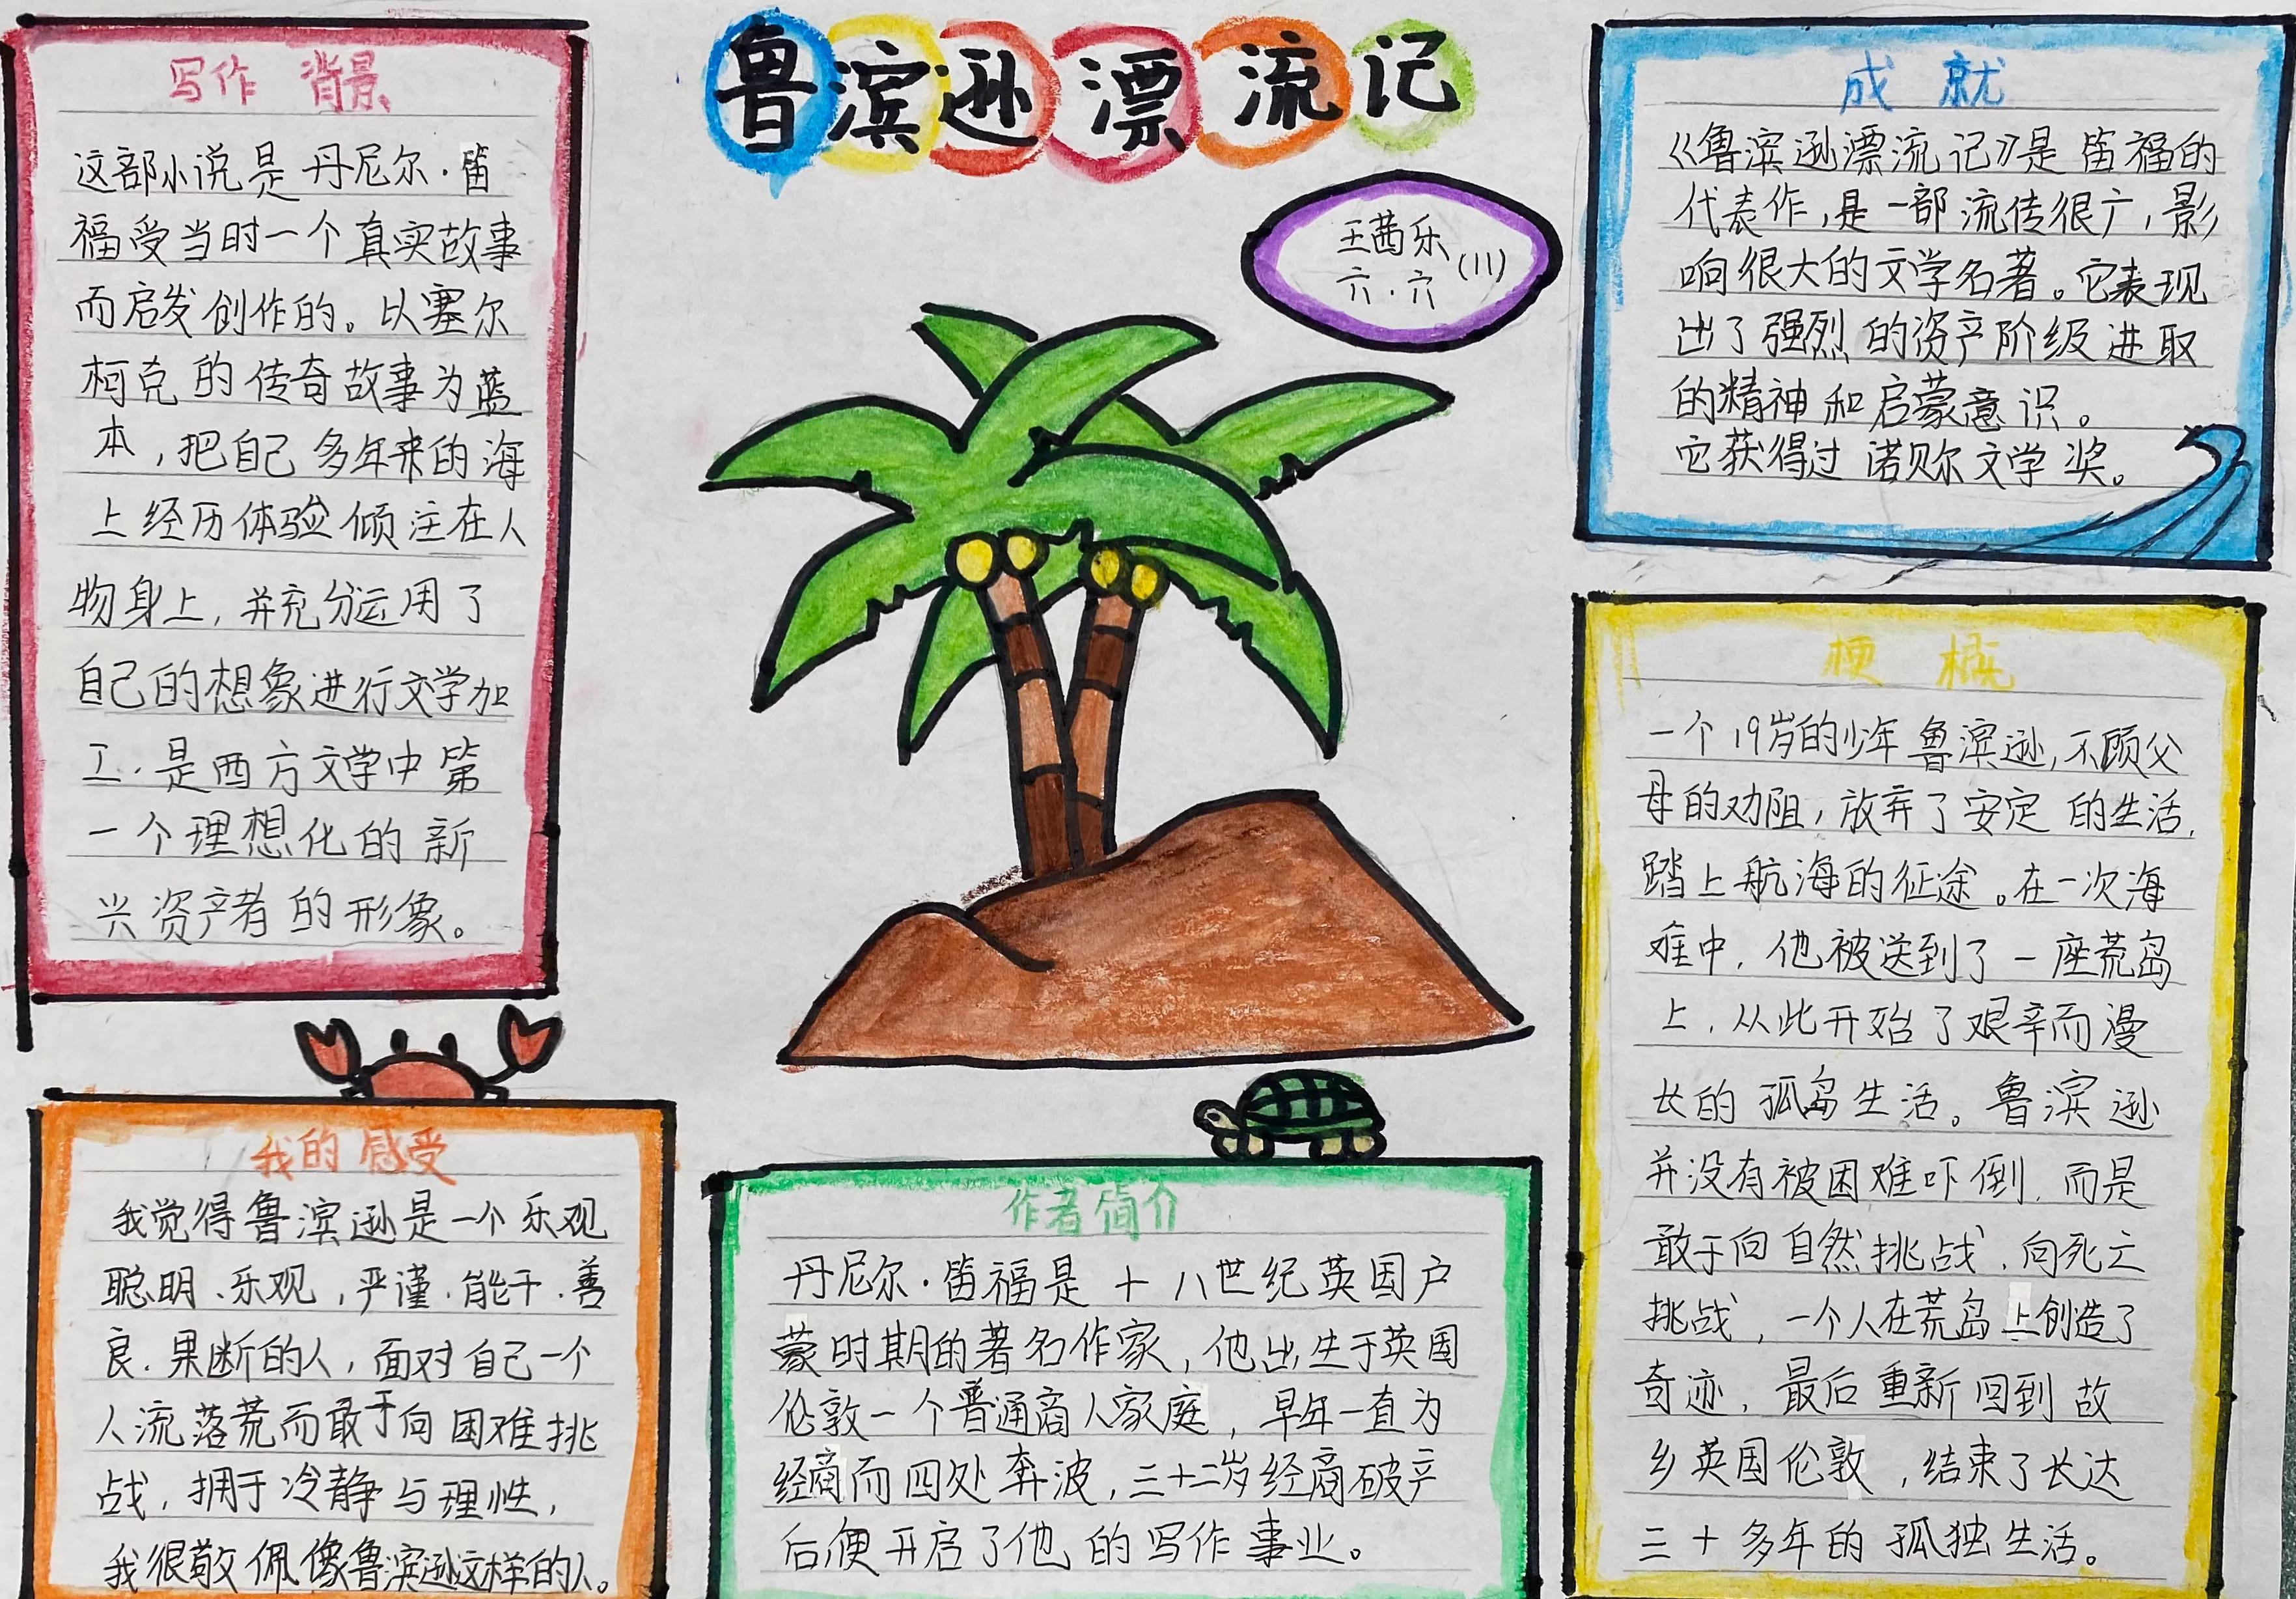 鲁滨逊漂流记
王茜乐
六.六(11)
写作背景
这部小说是丹尼尔·笛
福受当时一个真实故事
而启发创作的。以塞尔
柯克的传奇故事为蓝
本,把自己多年来的海
上经历体验倾注在人
物身上,并充分运用了
自己的想象进行文学加
工.是西方文学中第
一个理想化的新
兴资产者的形象。
我的感受
我觉得鲁滨逊是一个乐观
聪明、乐观,严谨.能干.善
良.果断的人,面对自己一个
人流落荒而敢于向困难挑
战,拥于冷静与理性,
我很敬佩像鲁滨逊这样的人。
作者简介
丹尼尔·笛福是十八世纪英国户
蒙时期的著名作家,他出生于英国
伦敦一个普通商人家庭,早年一直为
经商而四处奔波,三十二岁经商破产
后便开启了他的写作事业。
成就
《鲁滨逊漂流记》是笛福的
代表作,是一部流传很广,影
响很大的文学名著。它表现
出了强烈的资产阶级进取
的精神和启蒙意识。
它获得过诺贝尔文学奖。
梗概
一个19岁的少年鲁滨逊,不顾父
母的劝阻,放弃了安定的生活,
踏上航海的征途。在一次海
难中,他被送到了一座荒岛
上,从此开始了艰辛而漫
长的孤岛生活。鲁滨逊
并没有被困难吓倒,而是
敢于向自然挑战,向死亡
挑战,一个人在荒岛上创造了
奇迹,最后重新回到故
乡英国伦敦,结束了长达
三十多年的孤独生活。